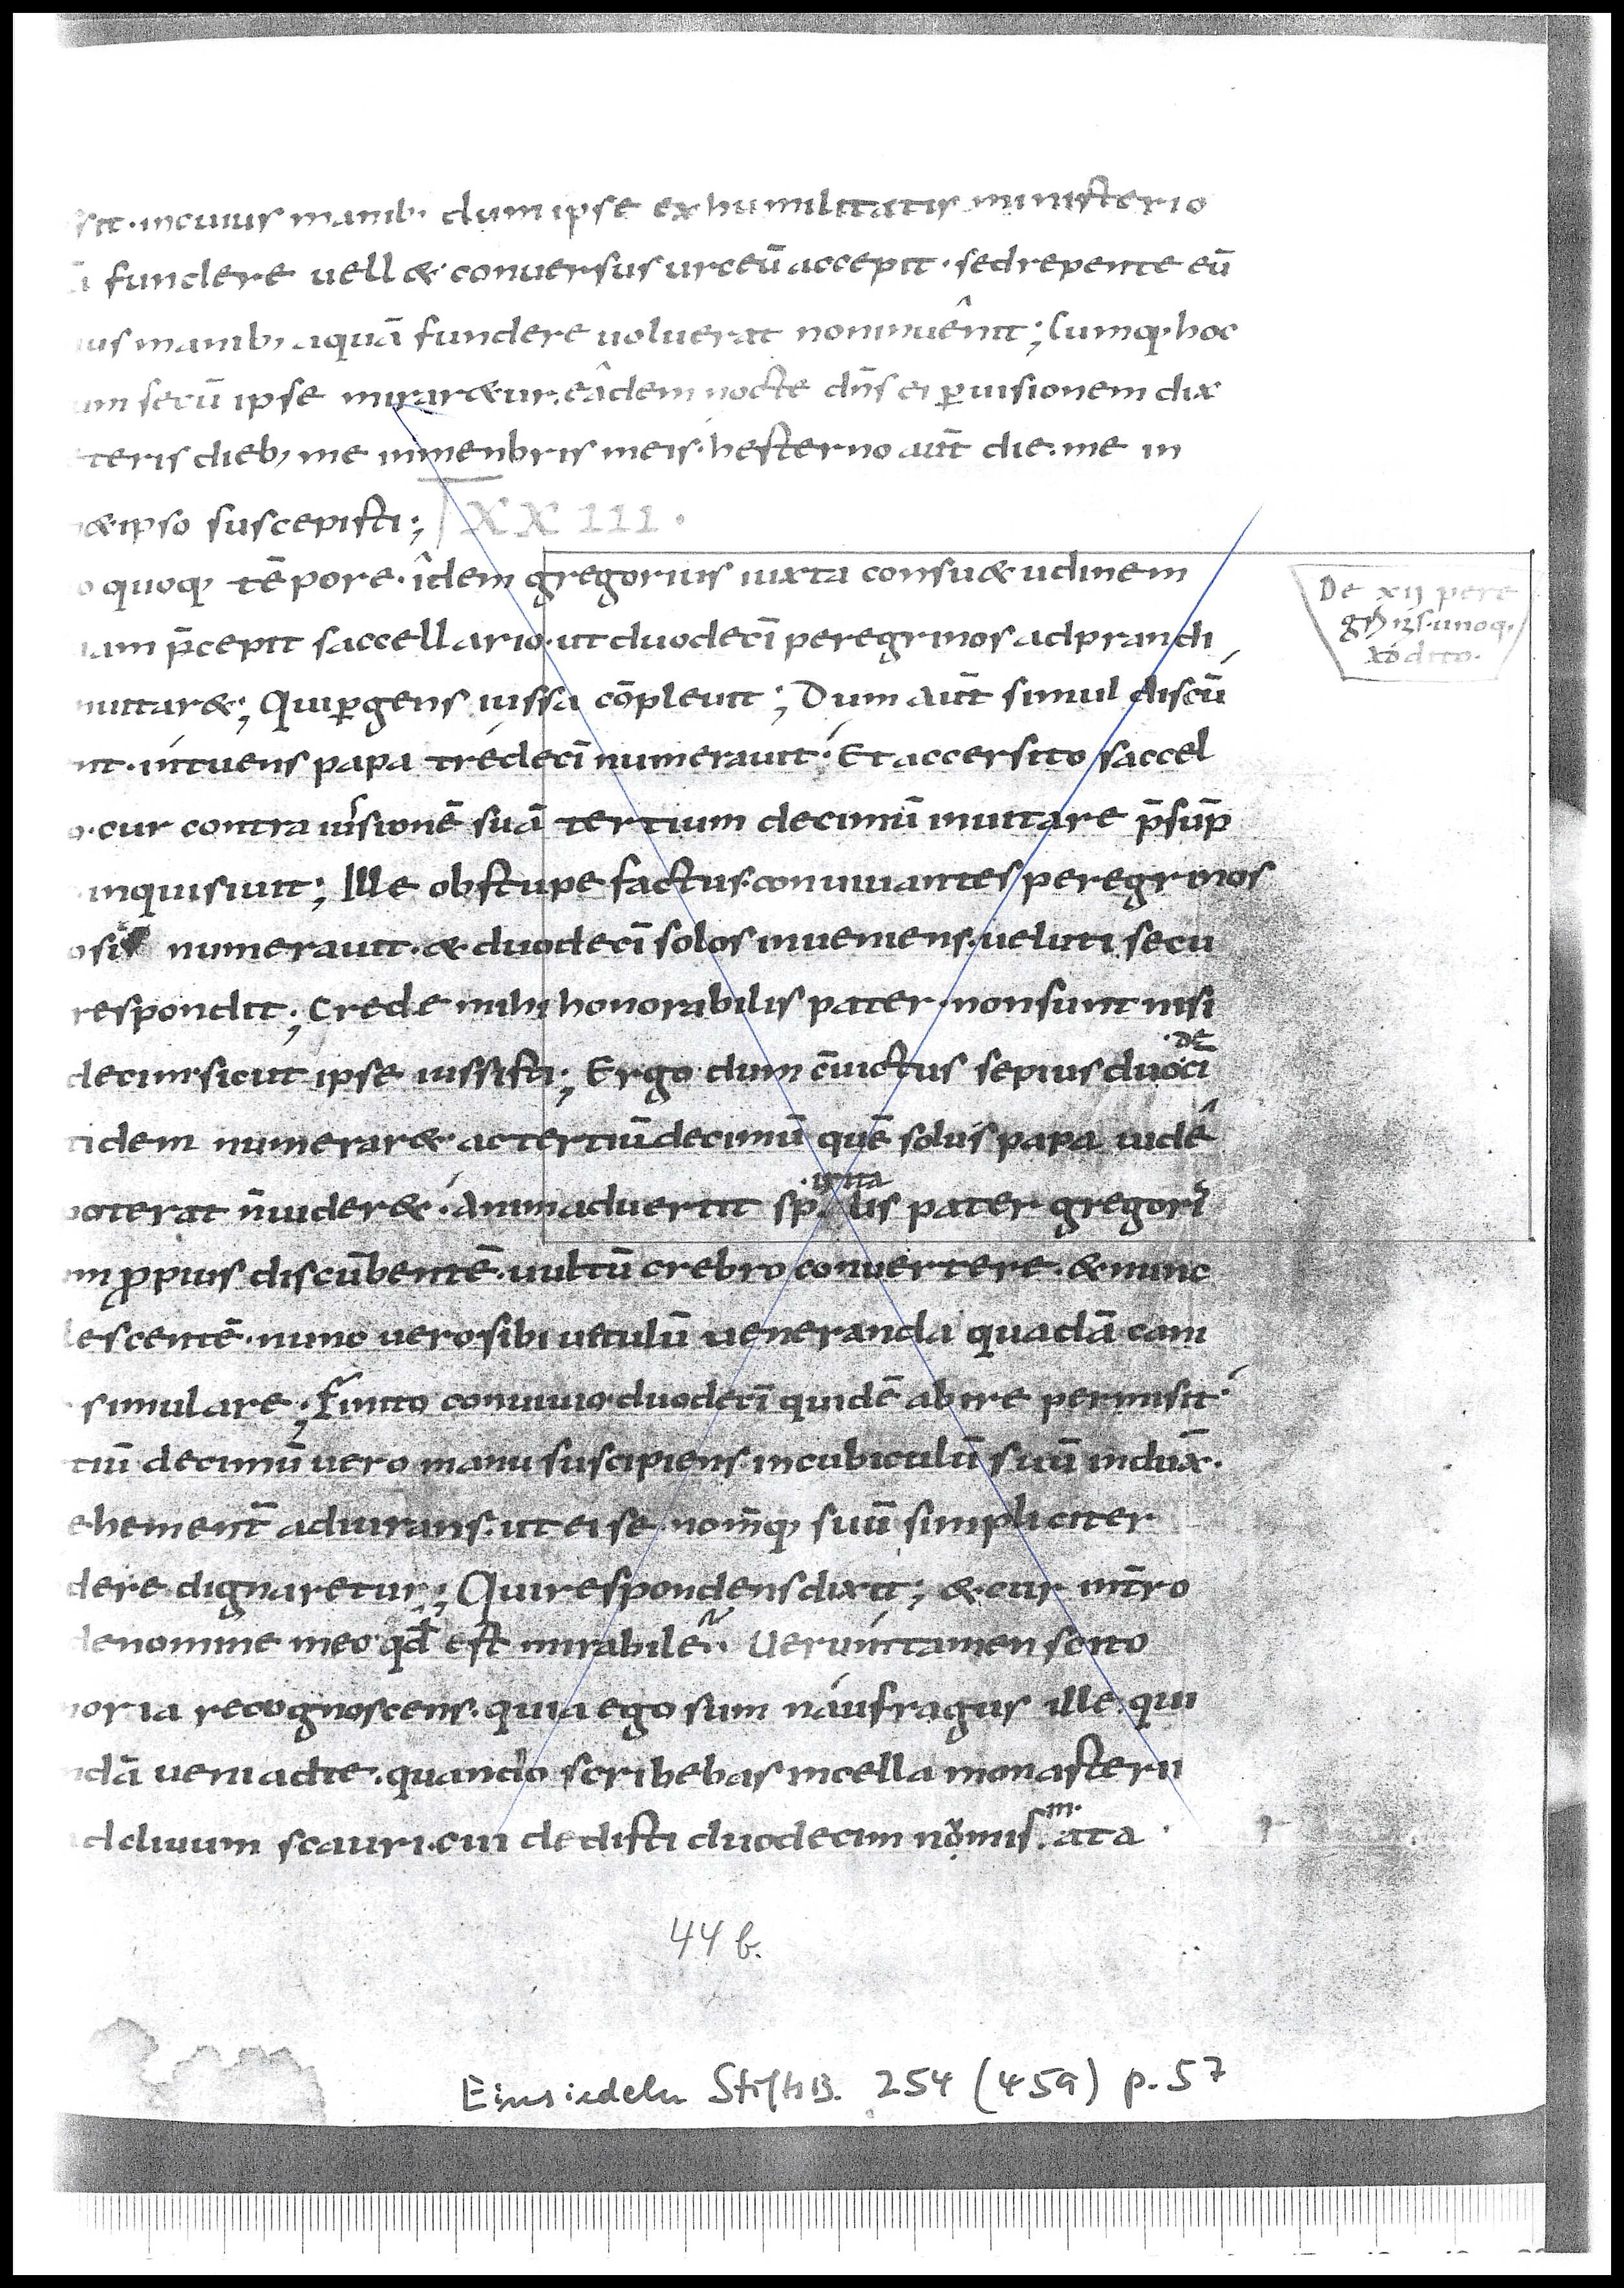 sit · incuius manib· dum ipse ex humilitatis ministerio
ā fundere uell& conuersus urceū accepit · sed repente eū
ius manib, aquā fundere uoluerat non inuênit ; Cumq· hoc
um secū ipse mirar&ur. eâdem nocte dn̄s ei ꝑ uisionem dix
teris dieb, me inmenbris meis · hesterno aūt die · me in
&ipso suscepisti ; XXIII ·
o quoq, tēpore · îdem gregorius iuxta consu&udinem
De xij pere
gnis · unoq,
dito ·
uam p̄cepit saccellario · ut duodecī peregrinos adprandi
inuitar& ; Quiꝑgens iussa cōpleuit ; Dum aūt simul discū
nt · intuens papa trédecī numerauit · Et accersito saccel
o · cur contra iussionē suā tertium decimū inuitare p̄sūp
inquisiuit ; Ille obstupefactus · conuiuantes peregrinos
osis numerauit · & duodecī solos inueniens · ueluti secu
respondit ; Crede mihi honorabilis pater · nonsunt nisi
decim sicut ipse iussisti ; Ergo dum c̄uictus sepius duo·dē·cī
tidem numerar& ac tertiū decimū quē solus papa uidé
poterat n̄ uider& · Animaduertit sp·irita·lis pater gregori
um ꝓpius discūbentē · uultū crebro conuertere · & nunc
lescentē · nunc uero sibi uetulū ueneranda quadā cani
simulare ; Finito conuiuio · duodecī quidē abire permisit ·
tiū decimū uero manu suscipiens · incubiculū suū indux̄ ·
ehement̄ adiurans · ut ei se nom̄q, suū simpliciter
dere dignaretur ; Qui respondens dixit ; & cur int̄ro
denomine meo qd̄ est mirabile · Uerúntamen scito
moria recognoscens · quia ego sum náufragus ille · qui
ndā ueni adte · quando scribebas incella monasterii
ad cliuum scauri · cui dedisti duodecim nomis·m·ata ·
44 b.
Einsiedeln StiftsB. 254 (459) p. 57